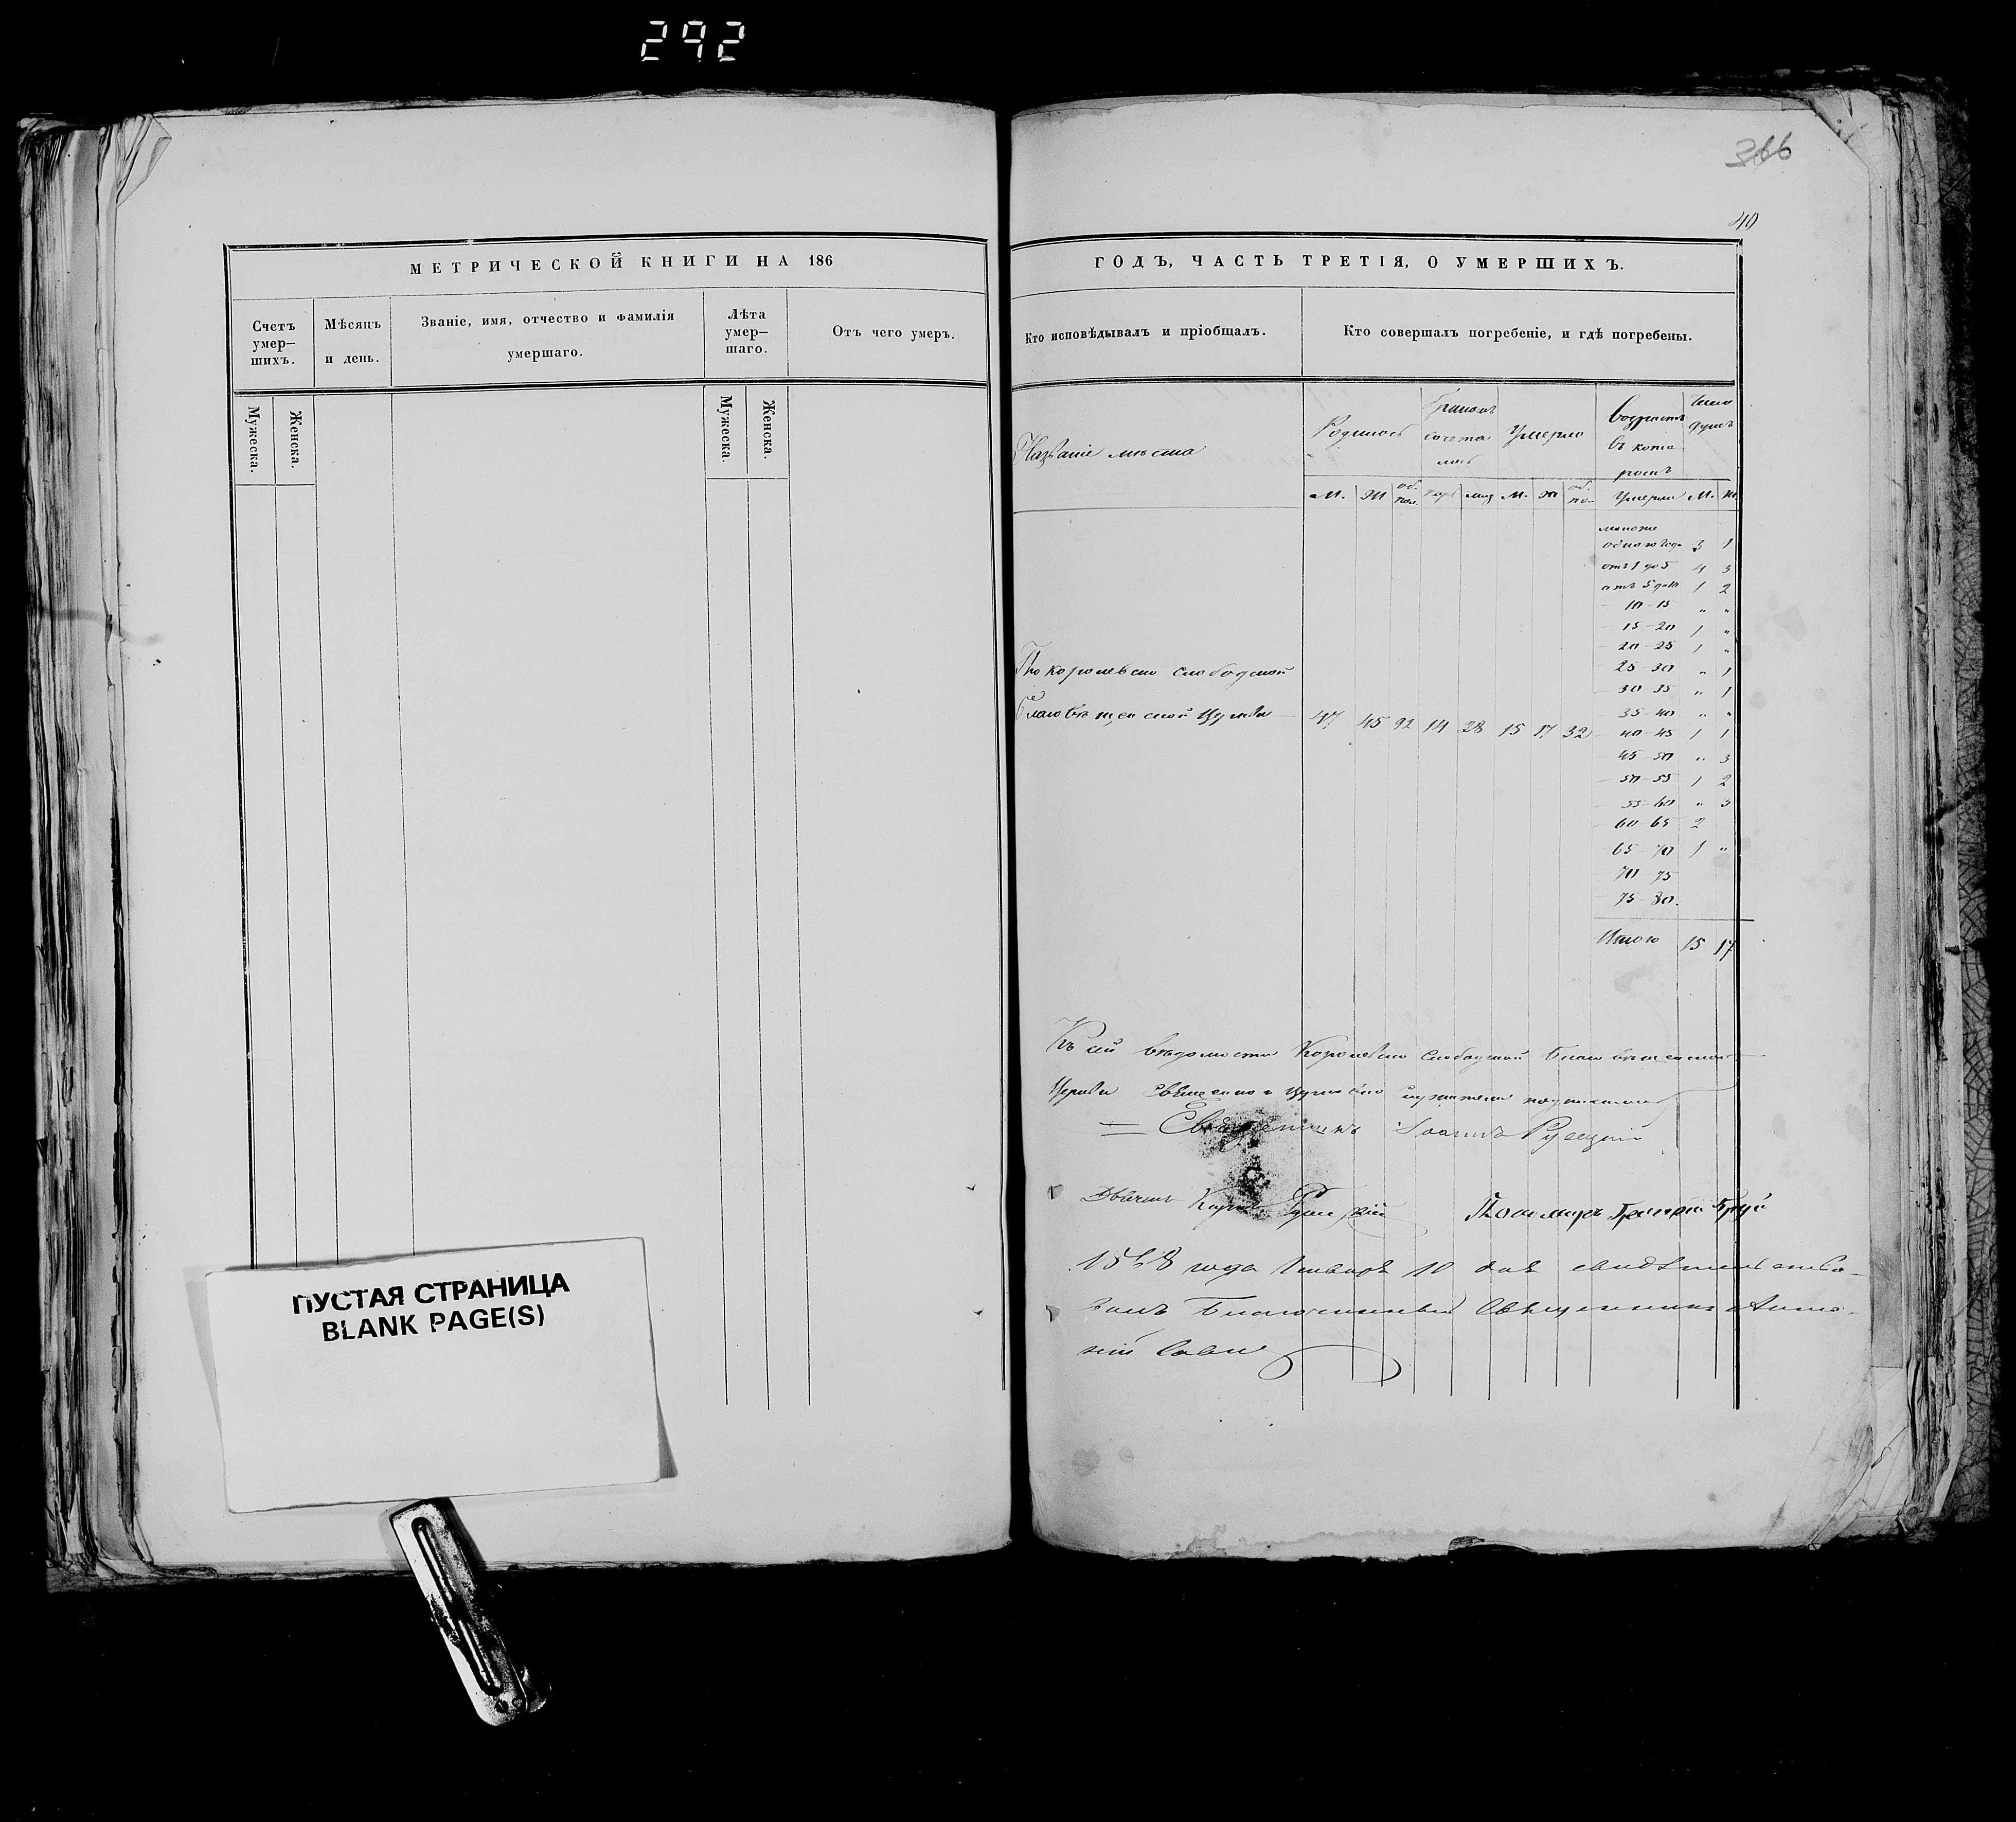 292
366
40
МЕТРИЧЕСКОЙ КНИГИ НА 186
Счетъ умер-шихъ.
Мѣсяцъ и день.
Званіе, имя, отчество и фамилія умершаго.
Лѣта умер-шаго.
Отъ чего умеръ.
Мужеска.
Женска.
Мужеска.
Женска.
ПУСТАЯ СТРАНИЦА
BLANK PAGE(S)
ГОДЪ, ЧАСТЬ ТРЕТІЯ, О УМЕРШИХЪ.
Кто исповѣдывалъ и пріобщалъ.
Кто совершалъ погребеніе, и гдѣ погребены.
Названіе мѣста
Родилось
Бракомъ сочета лось
Умерло
Возрастъ въ кото ромъ
Число душъ
М. Ж об. пол. М. Ж об. по Умерли М. Ж
моложе
одного года 3 1
отъ 1 до 5 4 3
отъ 5 до 10 1 2
10-15 " "
15-20 1 "
20-25 1 "
25-30 " 1
30-35 " 1
35-40 " "
40-45 1 1
45-50 " 3
50-55 1 2
55-60 " 3
60-65 2
65-70 1 "
70 75
75-80.
Итого 15 17
По королевско слободской
Благовѣщенской Церкви 47 45 92 14 28 15 17 32
Къ сей вѣдомости Королевско слободской Благовѣщенской
Церкви Священно и церковно служители подписались
Священникъ Іоаннъ
Дьячекъ Пономарь Григорій
года Января 10 дня свидѣтельство-
валъ Благочинный Священникъ